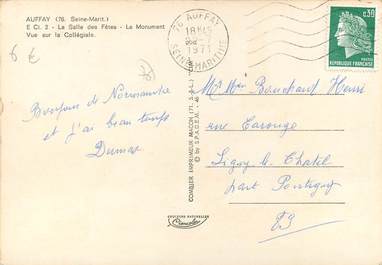 AUFFAY (76. Seine-Marit.)
E Ci. 2 - La Salle des Fêtes - Le Monument
Vue sur la Collégiale.
6 €
76 AUFFAY
18H45
1971
SEINE MARITIME
0,30
POSTES
RÉPUBLIQUE FRANÇAISE
Bonjour de Normandie
et j'ai beau temps
Dumas
COMBIER IMPRIMEUR MACON (71. S.-&-L.)
© by S.P.A.D.E.M.
COULEURS NATURELLES
Mr Mme Bouchant Henri
rue Carouge
Ligny le Chatel
part Pontigny
89